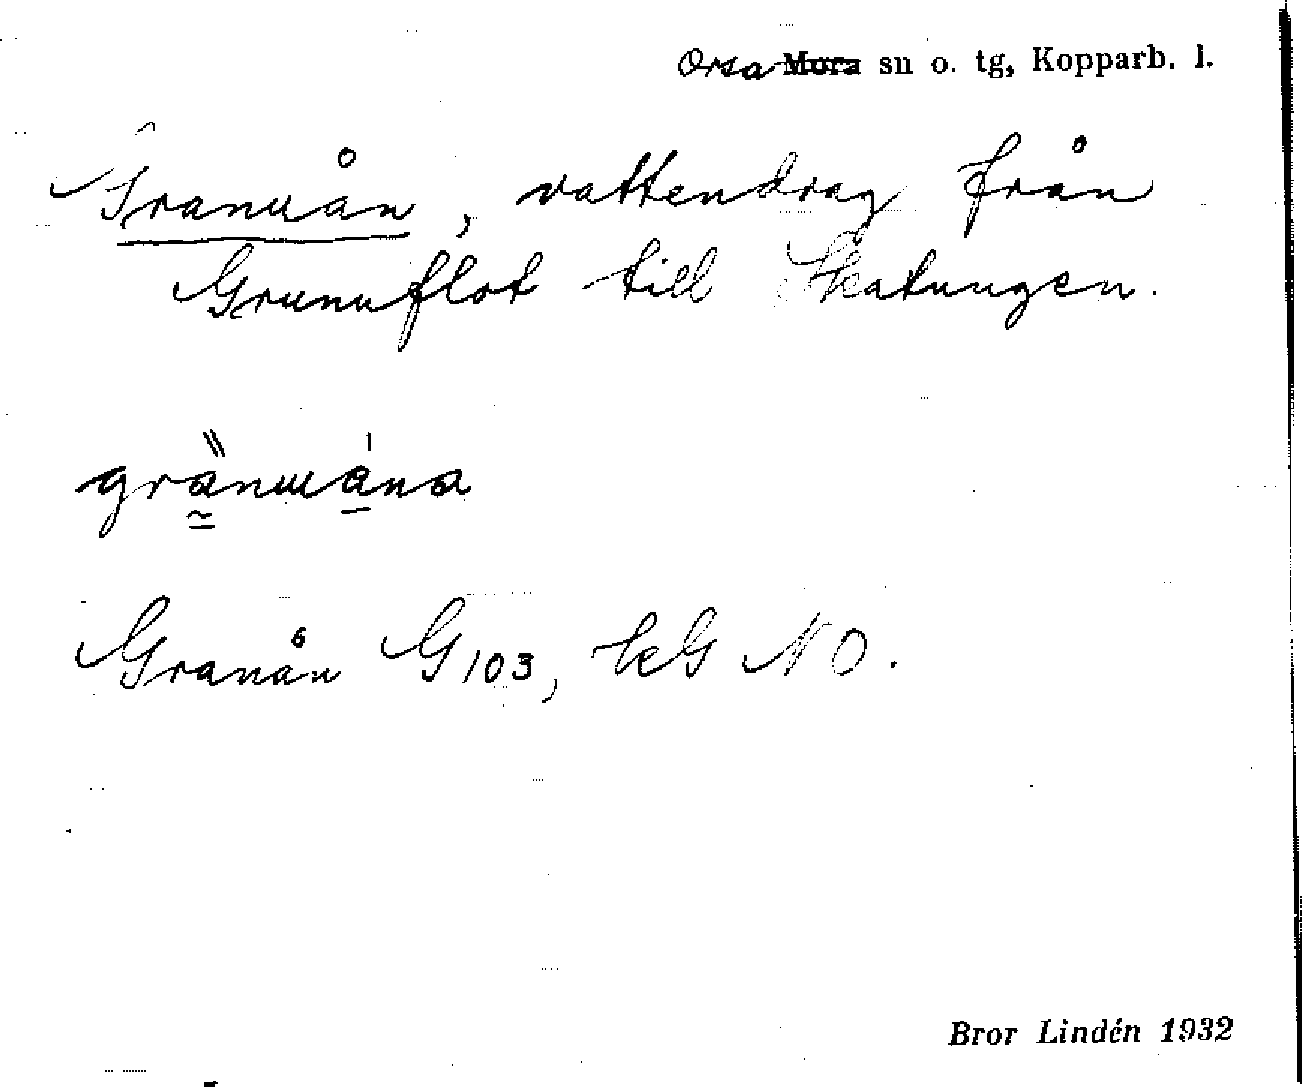 Orsa Mora sn o. tg, Kopparb. l.
Granuån, vattendrag från
Grunuflot till Skatungen.
Granån G103, kG NO.
Bror Lindén 1932